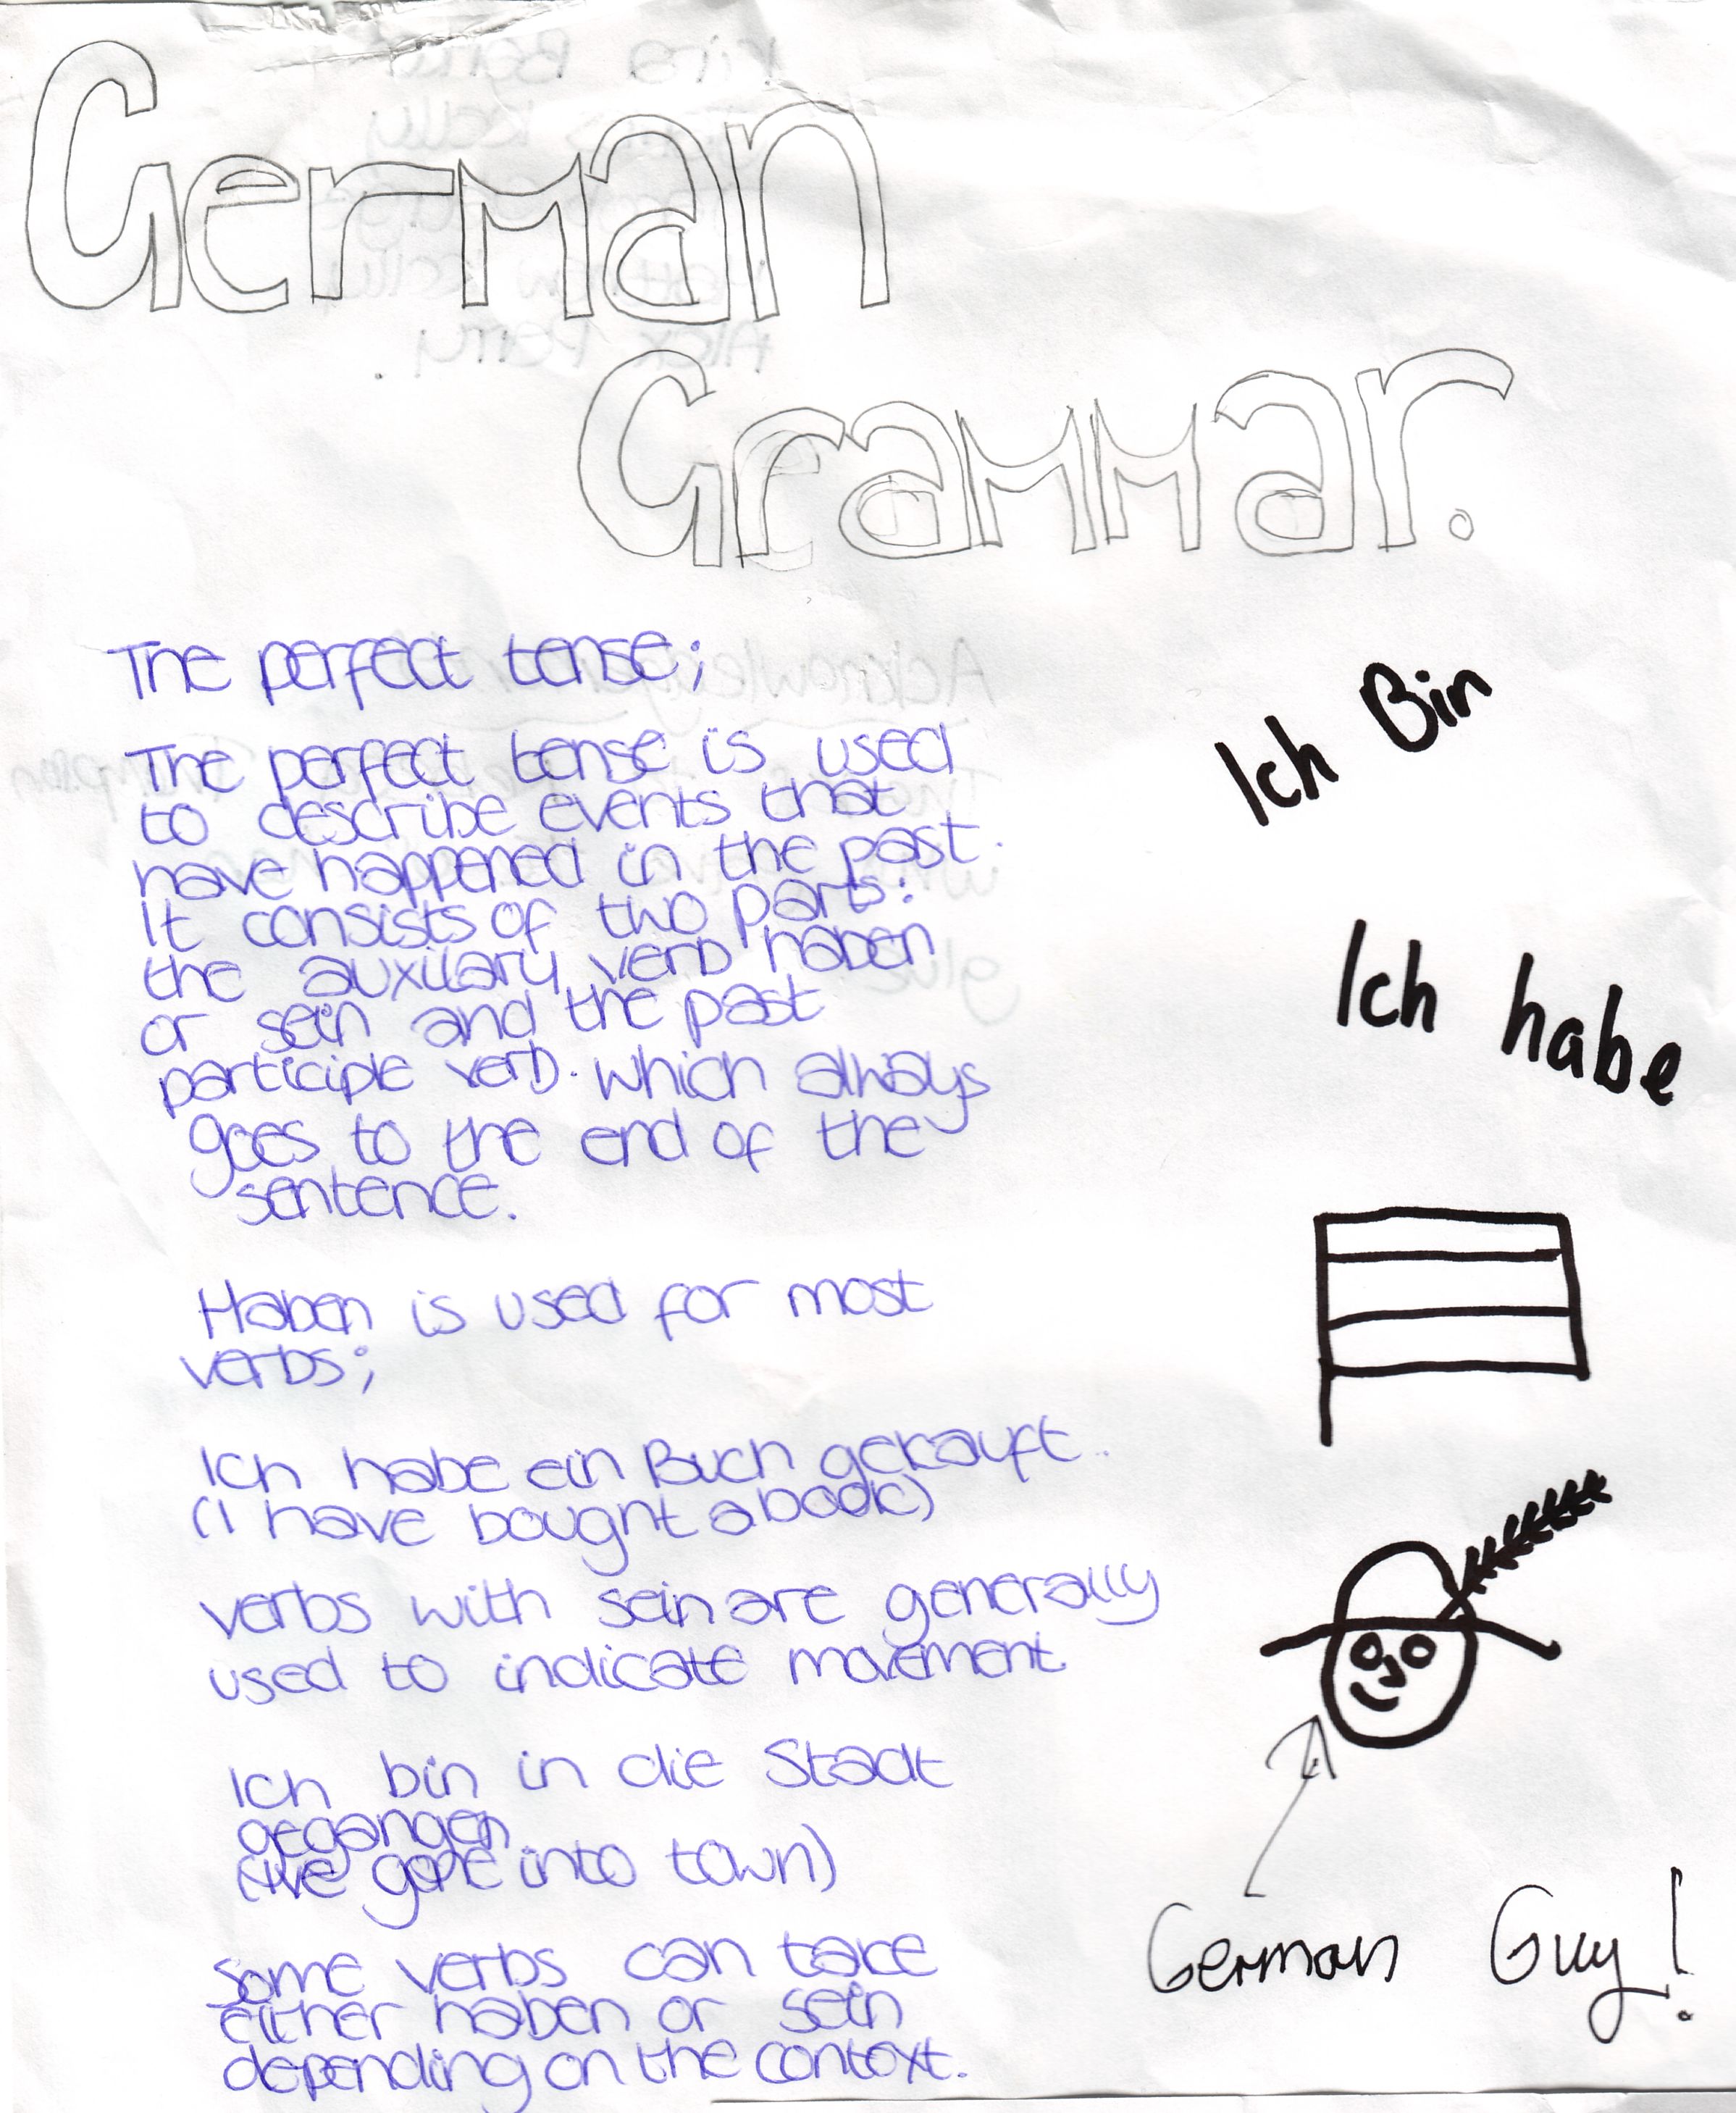 German
Grammar.
The perfect tense;
The perfect tense is used
to describe events that
have happened in the past.
It consists of two parts:
the auxilary verb haben
or sein and the past
participle verb. which always
goes to the end of the
sentence.
Haben is used for most
verbs;
Ich habe ein Buch gekauft..
(I have bought a book)
verbs with sein are generally
used to indicate movement
Ich bin in die Stadt
gegangen
(I've gone into town)
Some verbs can take
either haben or sein
depending on the context.
Ich Bin
Ich habe
German Guy!